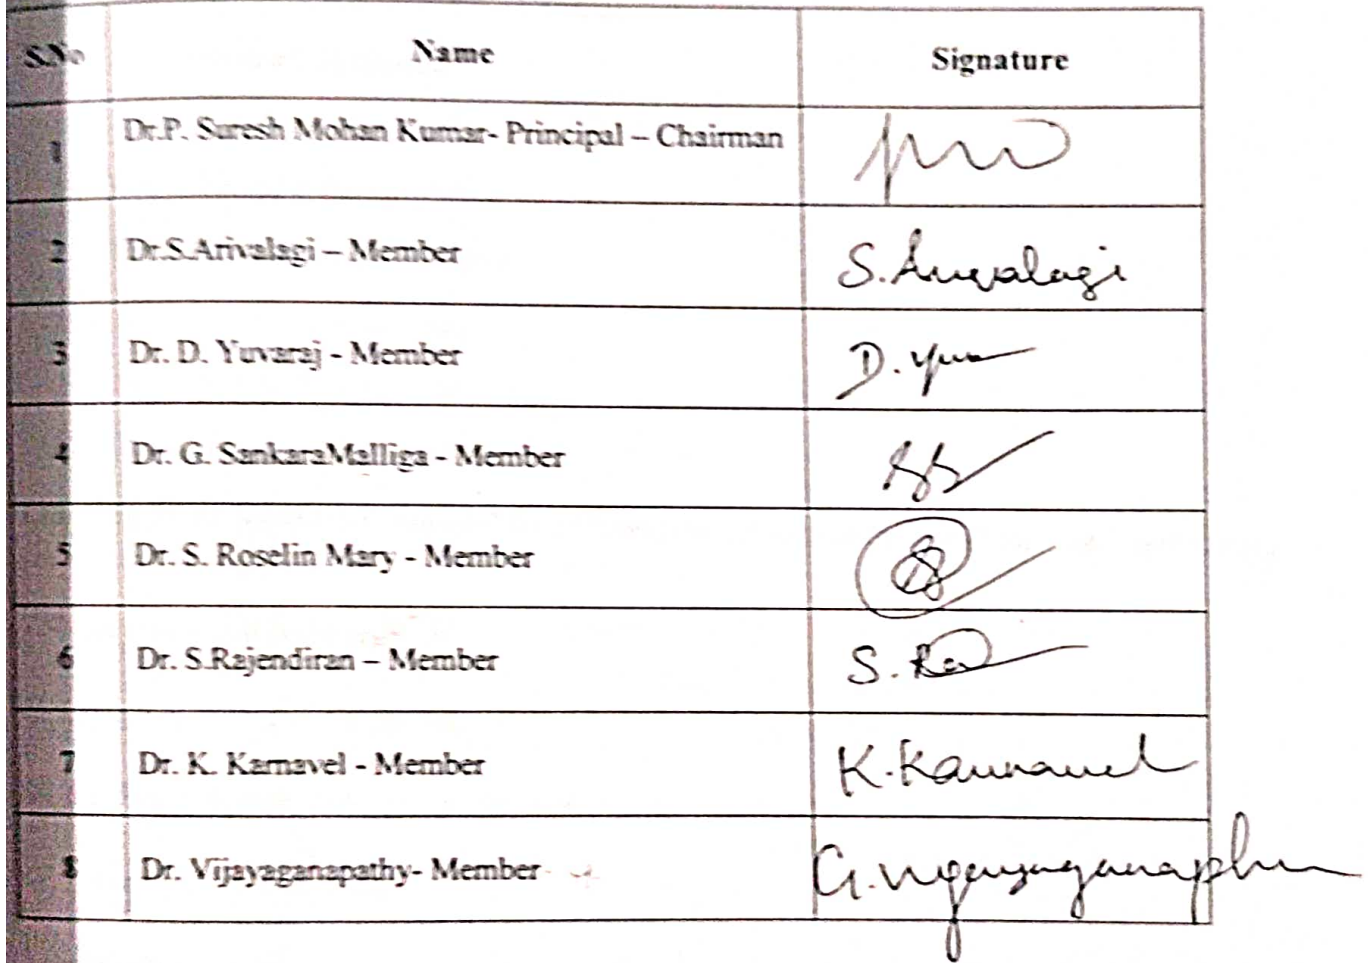 S.No Name Signature
1 Dr.P. Suresh Mohan Kumar- Principal – Chairman
2 Dr.S.Arivalagi – Member S.Arivalagi
3 Dr. D. Yuvaraj - Member D. Yuv
4 Dr. G. SankaraMalliga - Member
5 Dr. S. Roselin Mary - Member
6 Dr. S.Rajendiran – Member S. Ra
7 Dr. K. Karnavel - Member K. Karnavel
8 Dr. Vijayaganapathy- Member G. Vijayaganapathy